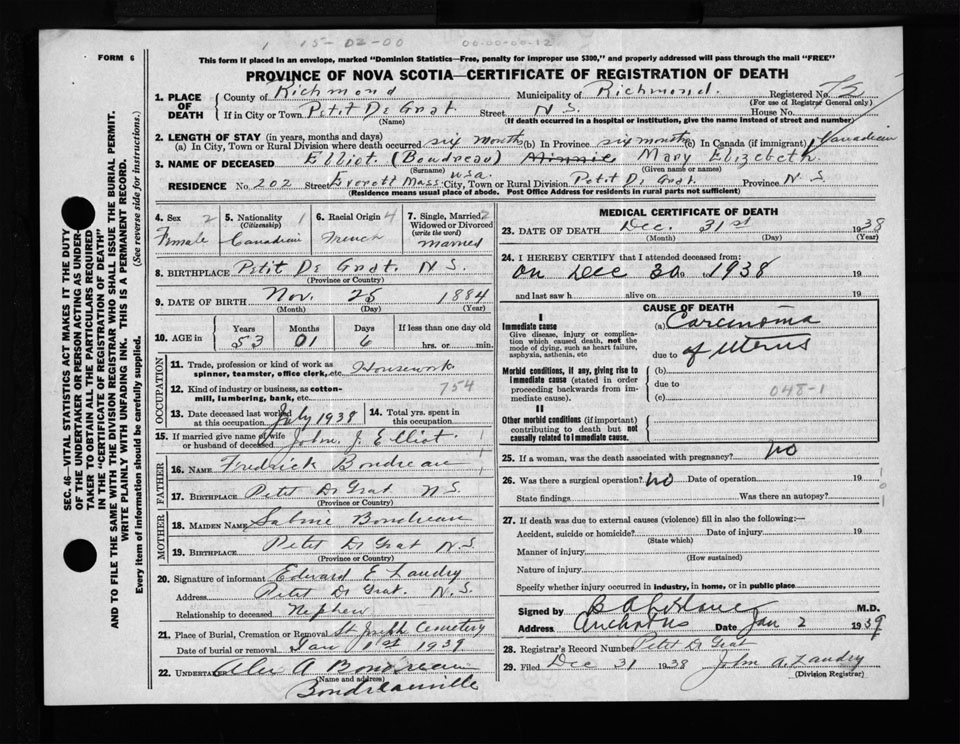 1 15-02-00 00-00-00-12
FORM 6
This form if placed in an envelope, marked "Dominion Statistics—Free, penalty for improper use $300," and properly addressed will pass through the mail "FREE"
PROVINCE OF NOVA SCOTIA—CERTIFICATE OF REGISTRATION OF DEATH
SEC. 46—VITAL STATISTICS ACT MAKES IT THE DUTY
OF THE UNDERTAKER OR PERSON ACTING AS UNDER-
TAKER TO OBTAIN ALL THE PARTICULARS REQUIRED
IN THE "CERTIFICATE OF REGISTRATION OF DEATH"
AND TO FILE THE SAME WITH THE DIVISION REGISTRAR WHO SHALL ISSUE THE BURIAL PERMIT.
WRITE PLAINLY WITH UNFADING INK. THIS IS A PERMANENT RECORD.
Every item of information should be carefully supplied. (See reverse side for instructions.)
1. PLACE OF DEATH County of Richmond Municipality of Richmond. Registered No.
(For use of Registrar General only.)
If in City or Town Petit De Grat. Street N S. House No.
(Name) (If death occurred in a hospital or institution, give the name instead of street and number)
2. LENGTH OF STAY (in years, months and days)
(a) In City, Town or Rural Division where death occurred six months (b) In Province six months (c) In Canada (if immigrant) Canadian
3. NAME OF DECEASED Elliot (Boudreau) Minnie Mary Elizebeth.
(Surname) (Given name or names)
RESIDENCE No. 202 Street Everett Mass. usa. City, Town or Rural Division Petit De Grat. Province N S.
(Residence means usual place of abode. Post Office Address for residents in rural parts not sufficient)
4. Sex 2 Female
5. Nationality (Citizenship) 1 Canadian
6. Racial Origin 4 French
7. Single, Married, Widowed or Divorced (write the word) 2 married
8. BIRTHPLACE Petit De Grat. N S.
(Province or Country)
9. DATE OF BIRTH Nov. 25 1884
(Month) (Day) (Year)
10. AGE in Years Months Days If less than one day old
53 01 6 hrs. or min.
OCCUPATION
11. Trade, profession or kind of work as spinner, teamster, office clerk, etc. Housework
12. Kind of industry or business, as cotton-mill, lumbering, bank, etc. 754
13. Date deceased last worked at this occupation July 1938
14. Total yrs. spent in this occupation
15. If married give name of wife or husband of deceased John J Elliot.
FATHER
16. NAME Fredrick Boudreau
17. BIRTHPLACE Petit D Grat N S.
(Province or Country)
MOTHER
18. MAIDEN NAME Sabine Boudreau
19. BIRTHPLACE Petit D Grat N.S
(Province or Country)
20. Signature of informant Edward E Landry
Address Petit D Grat. N.S.
Relationship to deceased Nephew
21. Place of Burial, Cremation or Removal St Joseph Cemetery
Date of burial or removal Jan 1st 1939.
22. UNDERTAKER Alex A Boudreau
(Name and address)
Boudreauville
MEDICAL CERTIFICATE OF DEATH
23. DATE OF DEATH Dec. 31st 1938
(Month) (Day) (Year)
24. I HEREBY CERTIFY that I attended deceased from:
on Dec 30 1938 19
and last saw h alive on 19
CAUSE OF DEATH
I
Immediate cause
Give disease, injury or complication which caused death, not the mode of dying, such as heart failure, asphyxia, asthenia, etc
(a) Carcinoma
due to of Uterus
Morbid conditions, if any, giving rise to immediate cause (stated in order proceeding backwards from immediate cause).
(b)
due to
(c) 048-1
II
Other morbid conditions (if important) contributing to death but not causally related to immediate cause.
25. If a woman, was the death associated with pregnancy? no
26. Was there a surgical operation? no Date of operation 19
State findings Was there an autopsy?
27. If death was due to external causes (violence) fill in also the following:—
Accident, suicide or homicide? Date of injury 19
(State which)
Manner of injury
(How sustained)
Nature of injury
Specify whether injury occurred in industry, in home, or in public place
Signed by M.D.
Address Arichat NS Date Jan 2 1939
28. Registrar's Record Number Petit D Grat
29. Filed Dec 31 1938 John A. Landry
(Division Registrar)